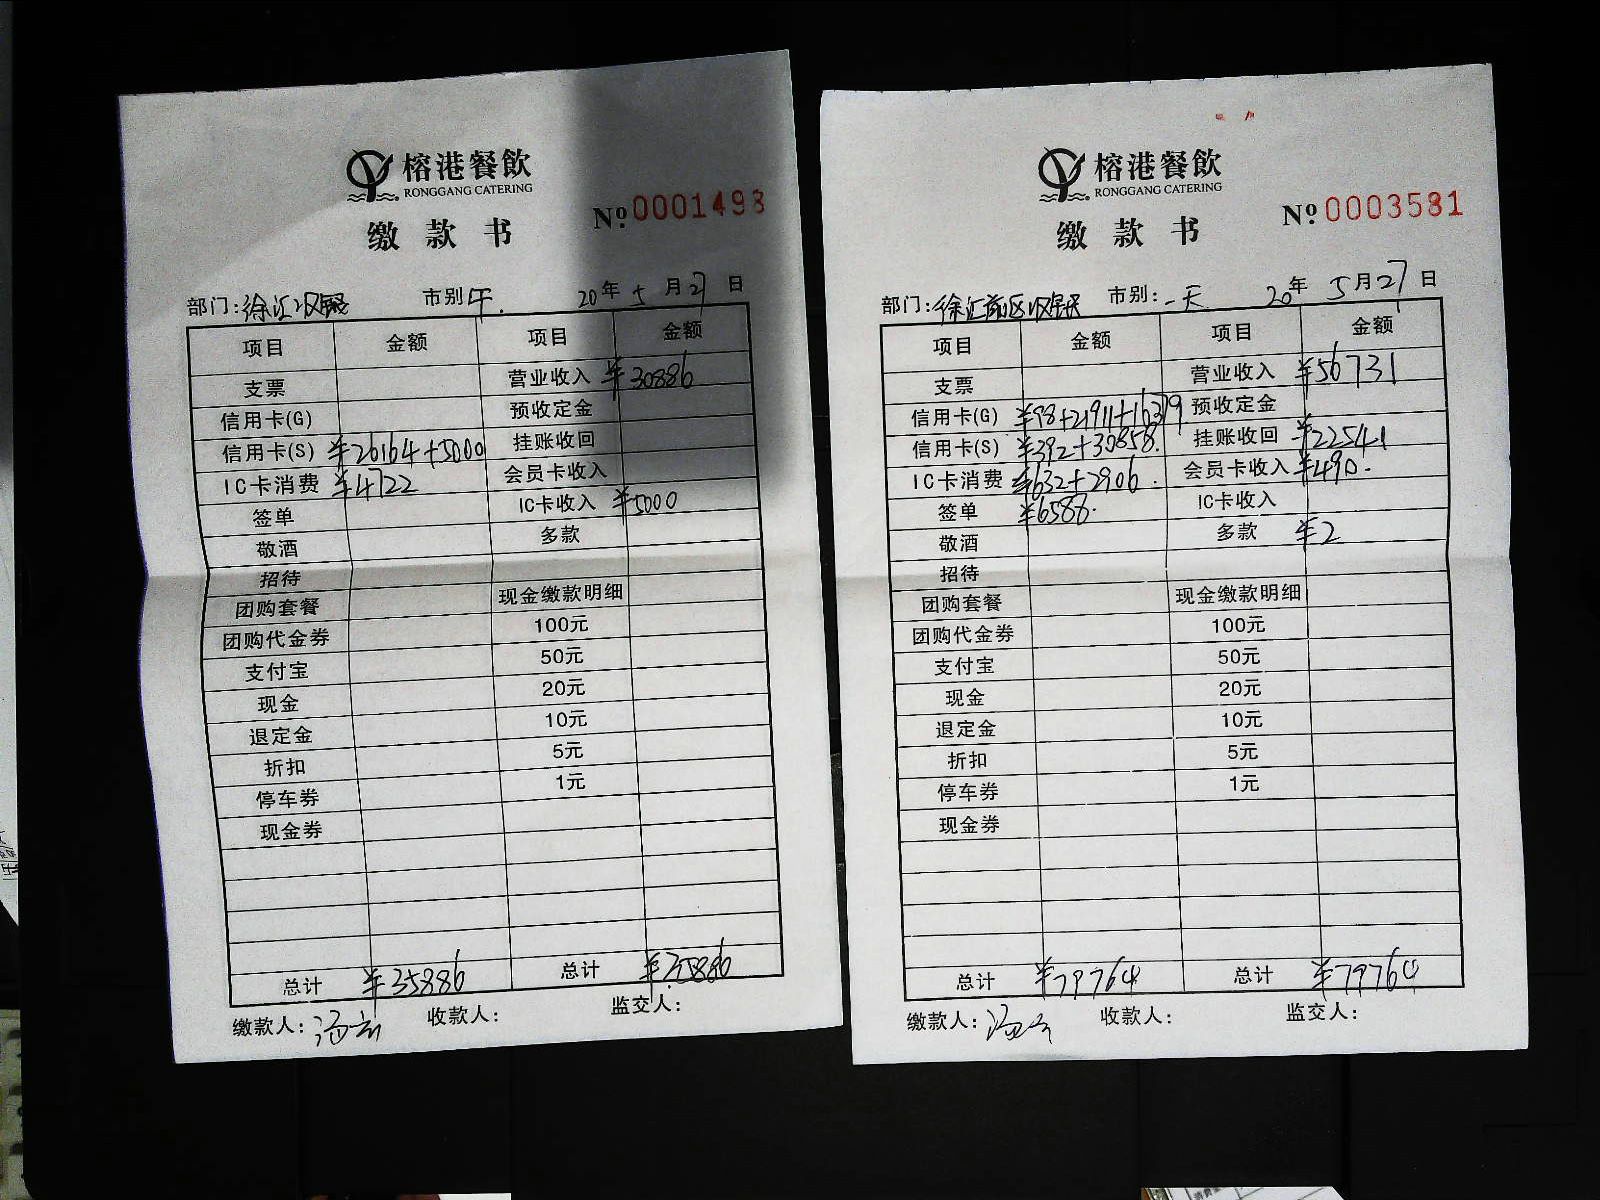 榕港餐飲
RONGGANG CATERING
缴款书
№ 0001493
部门:徐汇收银 市别 午. 20年 5月27日
项目 金额 项目 金额
支票 营业收入 ¥30886
信用卡(G) 预收定金
信用卡(S) ¥26164+5000 挂账收回
IC卡消费 ¥4722 会员卡收入
签单 IC卡收入 ¥5000
敬酒 多款
招待
团购套餐 现金缴款明细
团购代金券 100元
支付宝 50元
现金 20元
退定金 10元
折扣 5元
停车券 1元
现金券
总计 ¥35886 总计 ¥35886
缴款人: 收款人: 监交人:
榕港餐飲
RONGGANG CATERING
缴款书
№ 0003581
部门:徐汇前区收银 市别:一天 20年 5月27日
项目 金额 项目 金额
支票 营业收入 ¥56731
信用卡(G) ¥98+21911+16379 预收定金
信用卡(S) ¥392+30858. 挂账收回 ¥22541
IC卡消费 ¥632+2906. 会员卡收入 ¥490.
签单 ¥6588. IC卡收入
敬酒 多款 ¥2
招待
团购套餐 现金缴款明细
团购代金券 100元
支付宝 50元
现金 20元
退定金 10元
折扣 5元
停车券 1元
现金券
总计 ¥79764 总计 ¥79764
缴款人: 收款人: 监交人: